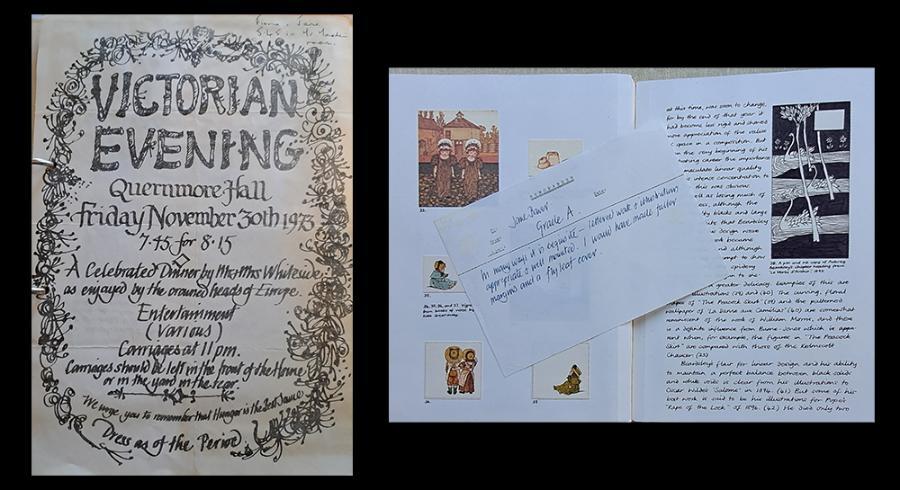 Fiona + Jane
5.45 in
VICTORIAN
EVENING
Quernmore Hall
Friday November 30th 1973
7·45 for 8·15
A Celebrated Dinner by Mr & Mrs Whiteside
as enjoyed by the crowned heads of Europe.
Entertainment
(Various)
Carriages at 11 pm.
Carriages should be left in the front of the House
or in the yard in the rear.
We urge you to remember that Hunger is the Best Sauce
Dress as of the Period
at this time, was soon to change,
for by the end of that year it
had become less rigid and showed
more appreciation of the value
space in a composition. But
the very beginning of his
career the importance
linear quality
intense concentration to
this was shown
as losing much of
although the
black and large
Design were
become
and although
to show
greater delicacy. Examples of this are
(39) and (40). The curving, floral
of "The Peacock Skirt" (39) and the patterned
wallpaper of "La Dame aux Camélias" (40) are somewhat
reminiscent of the work of William Morris, and there
is a definite influence from Burne-Jones which is appa-
rent when, for example, the figures in "The Peacock
Skirt" are compared with those of the Kelmscott
Chaucer. (23)
Beardsley's flair for linear design and his ability
to maintain a perfect balance between black solids
and white voids is clear from his illustrations to
Oscar Wildes' "Salome" in 1894. (41) But some of his
best work is said to be his illustrations for Pope's
"Rape of the Lock" of 1896. (42) He died only two
Grade A.
In many ways it is exquisite — lettered work & illustrations
appropriate & well mounted. I would have made fuller
margins and a fly leaf cover.